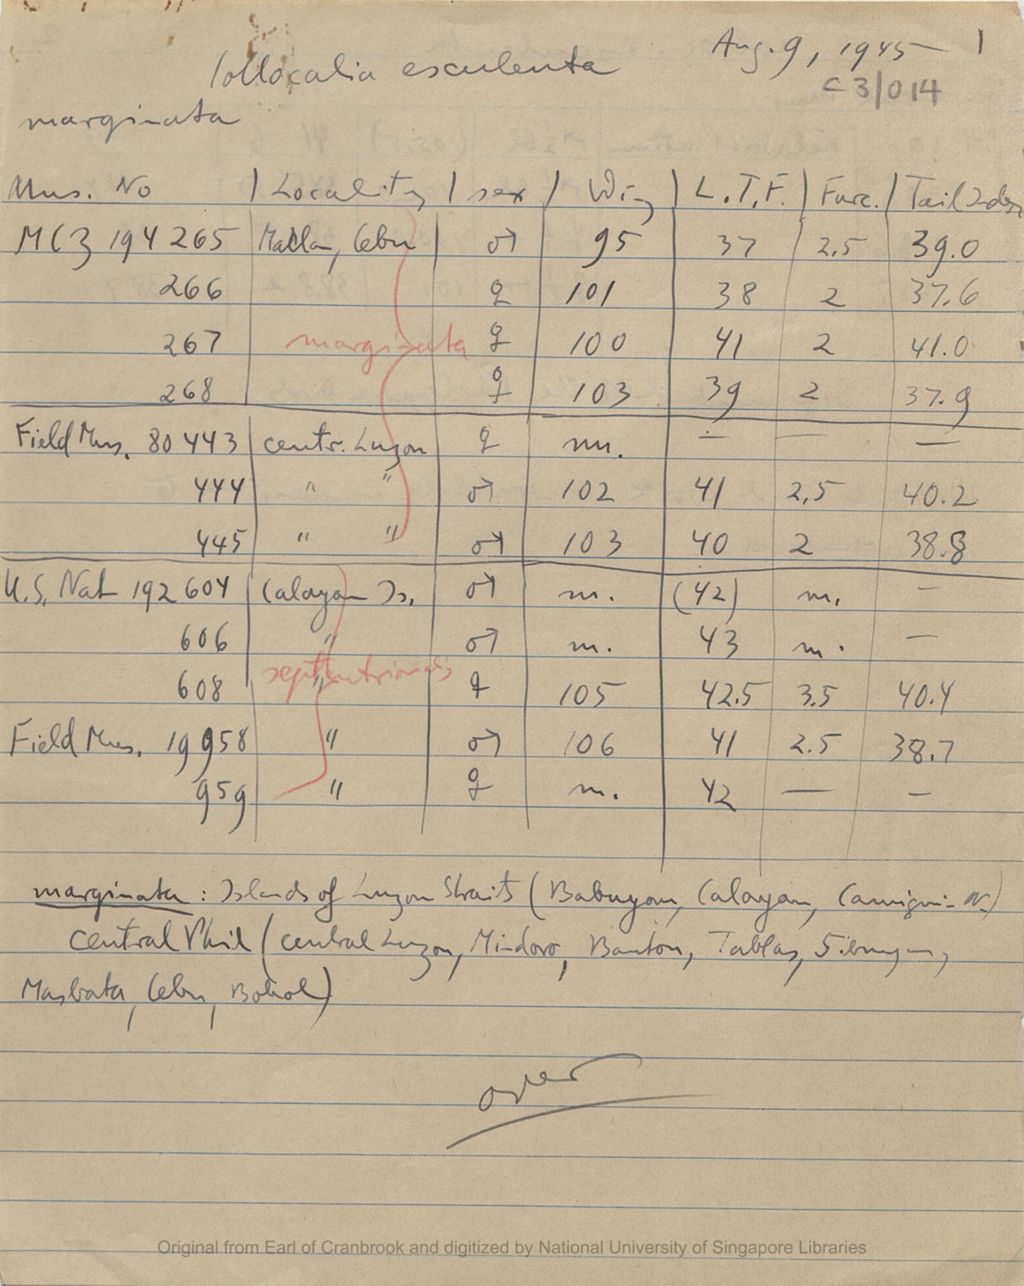 Aug. 9, 1945 1
Collocalia esculenta
C3/014
marginata
Mus. No | Locality | sex | Wing | L.T.F. | Furc. | Tail Index
MCZ 194 265 | Mactan, Cebu | ♂ 95 37 2.5 39.0
266 ♀ 101 38 2 37.6
267 marginata ♀ 100 41 2 41.0
268 ♀ 103 39 2 37.9
Field Mus. 80 443 centr. Luzon ♀ m. — — —
444 " " ♂ 102 41 2.5 40.2
445 " " ♂ 103 40 2 38.8
U.S. Nat 192 604 Calayan Is. ♂ m. (42) m. —
606 " ♂ m. 43 m. —
septentrionalis
608 " ♀ 105 42.5 3.5 40.4
Field Mus. 19 958 " ♂ 106 41 2.5 38.7
959 " ♀ m. 42 — —
marginata: Islands of Luzon Straits (Babuyan, Calayan, Camiguin N.)
Central Phil (central Luzon, Mindoro, Banton, Tablas, Sibuyan,
Masbata, Cebu, Bohol)
over
Original from Earl of Cranbrook and digitized by National University of Singapore Libraries